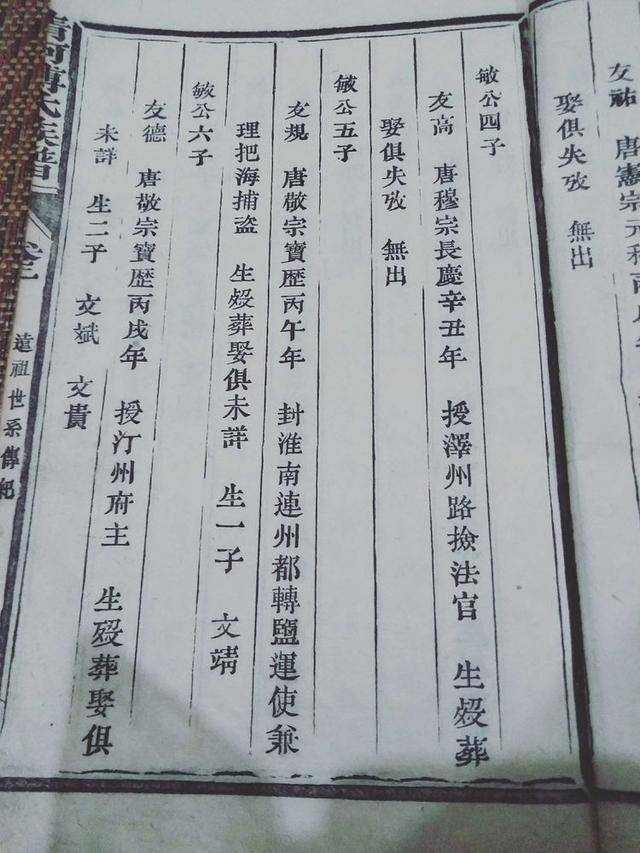 友祐 唐憲宗元和丙
娶俱失攷 無出
敏公四子
友高 唐穆宗長慶辛丑年 授澤州路撿法官 生歿葬
娶俱失攷 無出
敏公五子
友規 唐敬宗寶歷丙午年 封淮南連州都轉鹽運使兼
理把海捕盜 生歿葬娶俱未詳 生一子 文靖
敏公六子
友德 唐敬宗寶歷丙戌年 授汀州府主 生歿葬娶俱
未詳 生二子 文斌 文貴
清河傅氏族譜 卷
遠祖世系傳紀